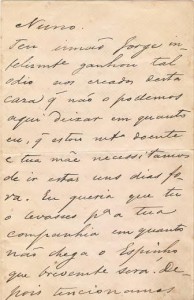 Nuno.
Teu irmão Jorge in-
felizmente ganhou tal
odio aos creados desta
caza q̃ não o podemos
aqui deixar em quanto
eu, q̃ estou mto doente
e tua mãe necessitamos
de ir estar uns dias fo-
ra. Eu queria que tu
o levasses pa a tua
companhia em quanto
não chega o Espinho
que brevemente será. De-
pois tencionamos